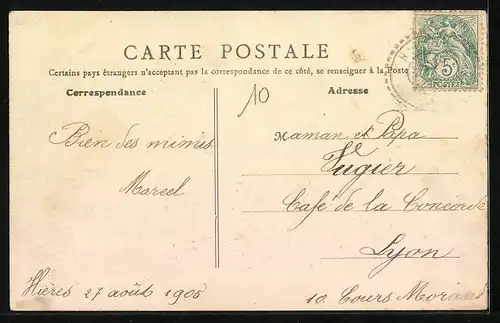 CARTE POSTALE
Certains pays étrangers n'acceptant pas la correspondance de ce côté, se renseigner à la Poste
Correspondance
Adresse
10
5c
POSTES
Bien des mimis
Marcel
Hières 27 août 1905
Maman et Papa
Fugier
Café de la Concorde
Lyon
10. Cours Morand